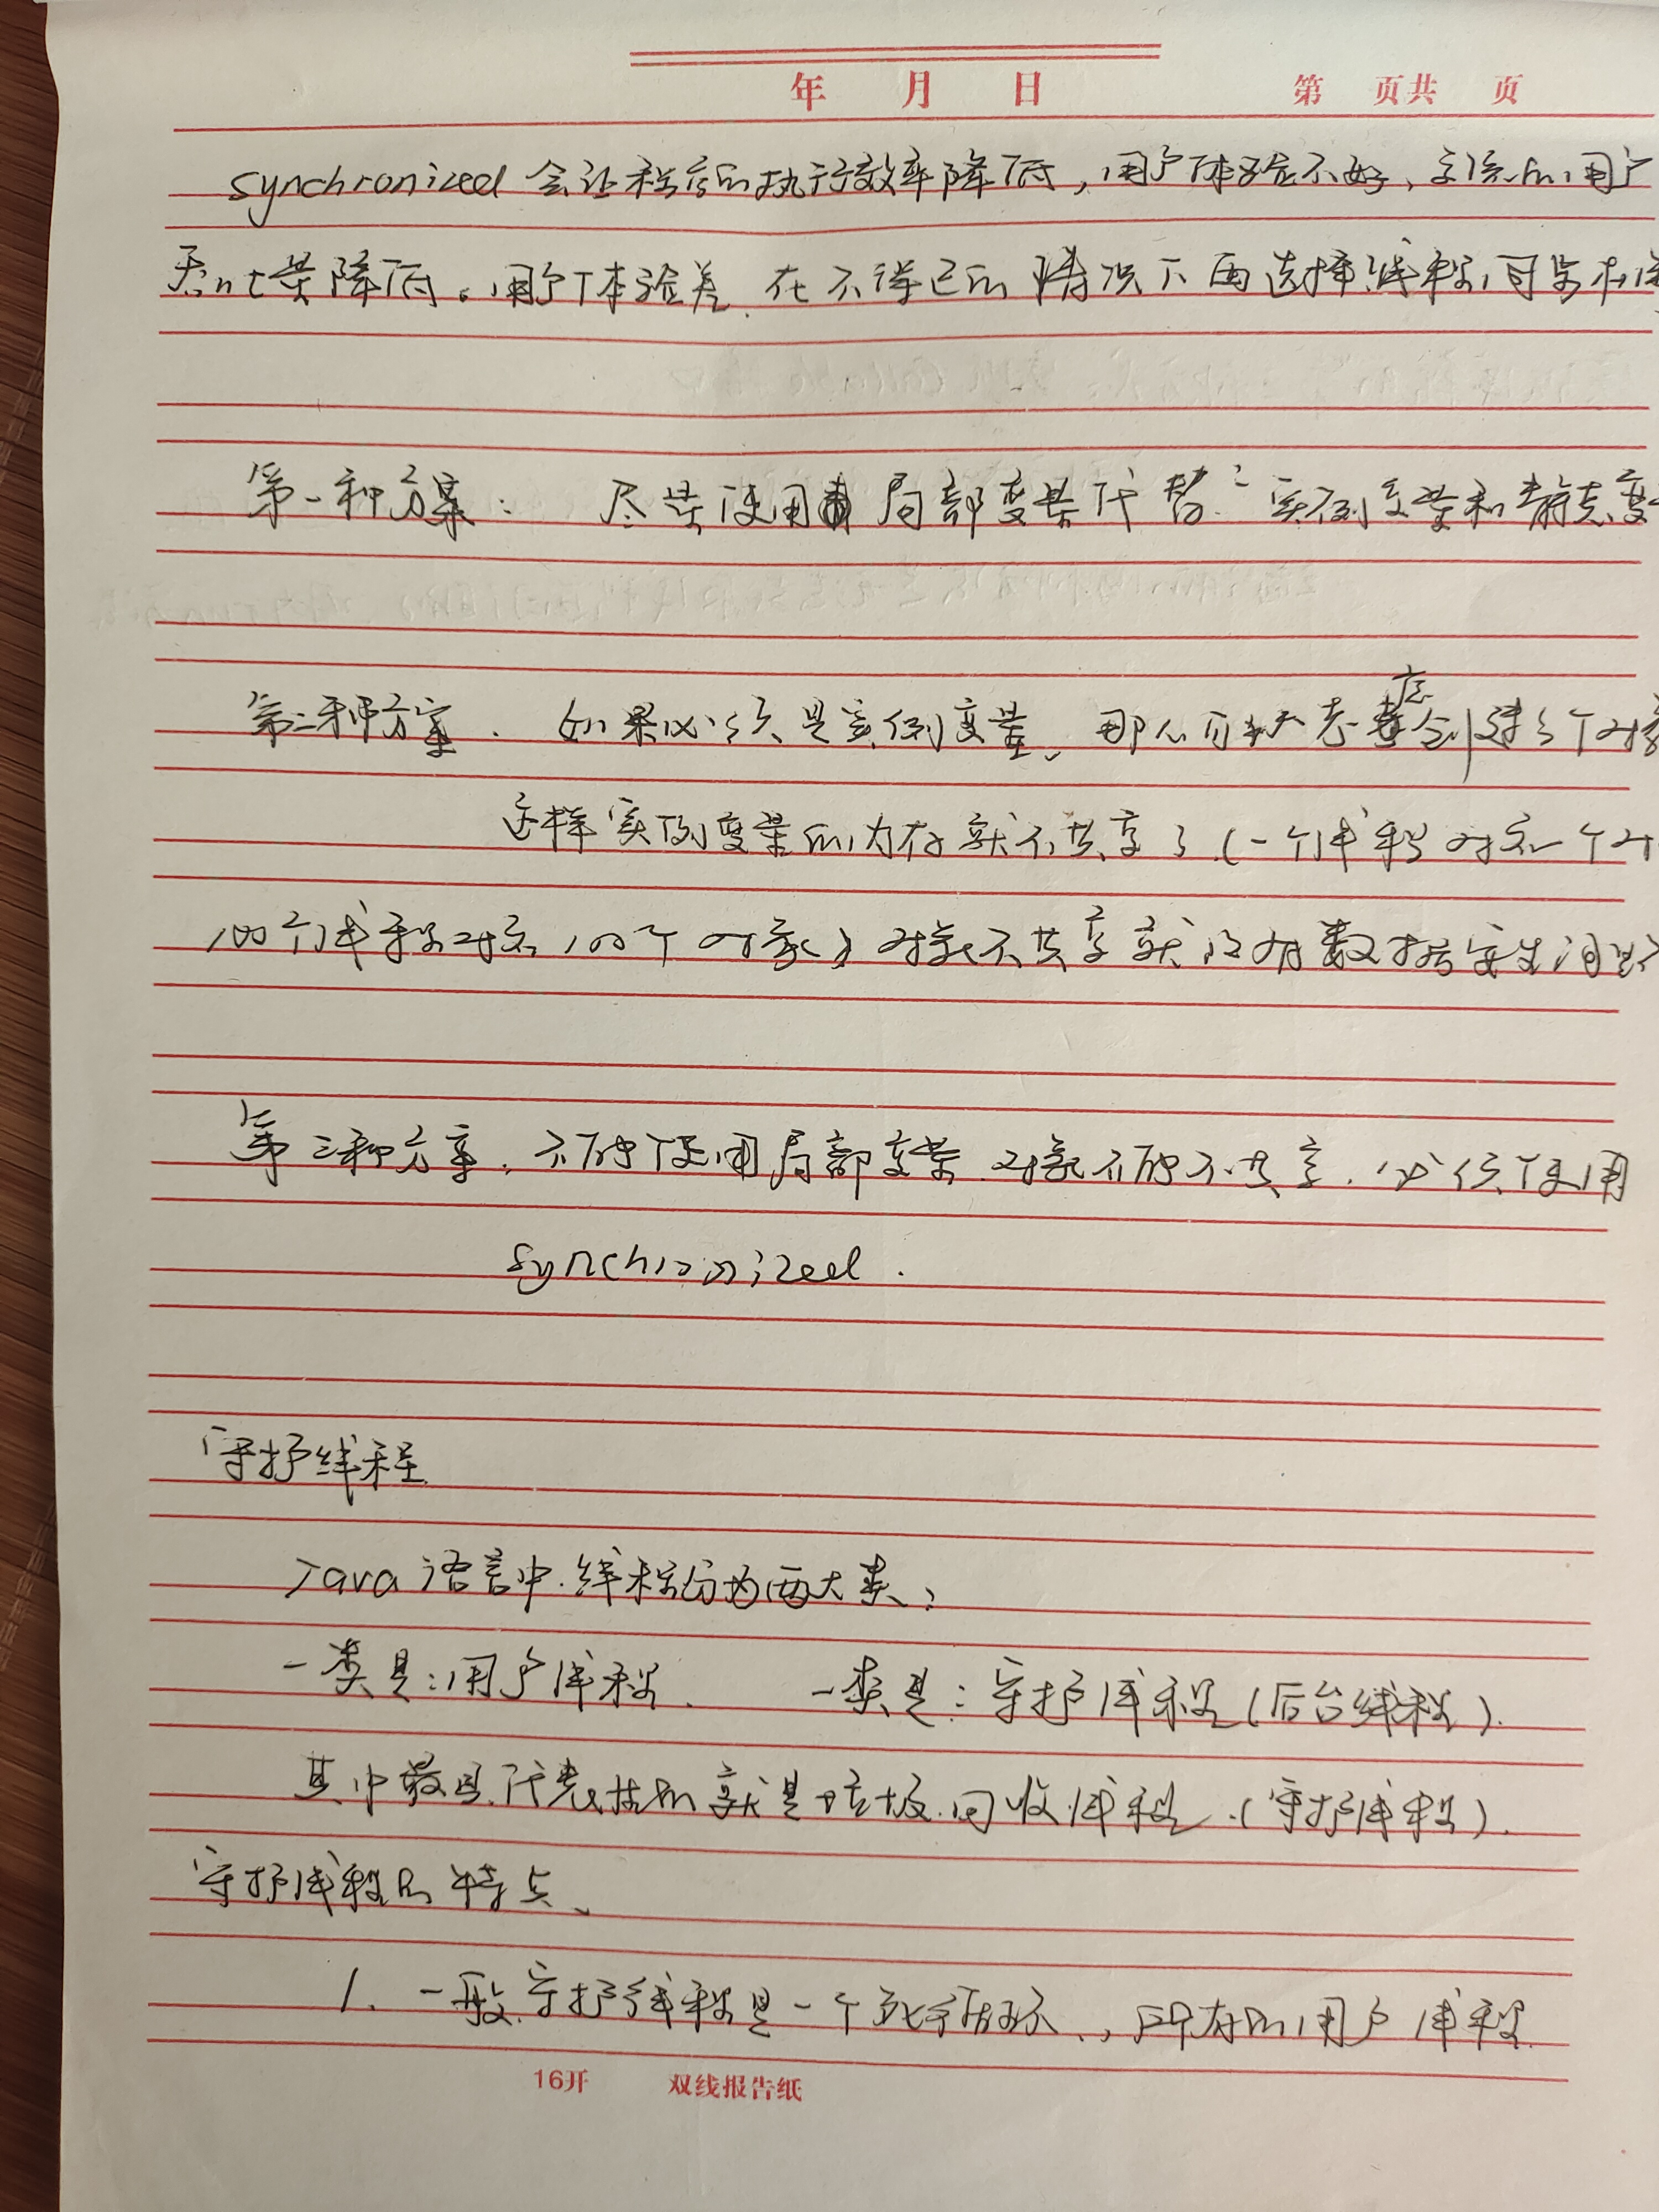 年 月 日 第 页共 页
synchronized 会让程序的执行效率降低，用户体验不好、系统的用户
吞吐量降低。用户体验差. 在不得已的情况下再选择线程同步机制
第一种方案： 尽量使用 局部变量代替： 实例变量和静态变
第二种方案 . 如果必须是实例变量、那么可以考虑创建多个对象
这样实例变量的内存就不共享了（一个线程对应一个对
100个线程对应100个对象）对象不共享就没有数据安全问题
第三种方案，不能使用局部变量 对象不能不共享 . 必须使用
synchronized .
守护线程
Java 语言中.线程分为两大类：
一类是：用户线程 . 一类是：守护线程（后台线程）.
其中最具代表性的就是垃圾回收线程 .（守护线程）.
守护线程的特点、
1. 一般守护线程是一个死循环 . , 所有的用户线程
16开 双线报告纸